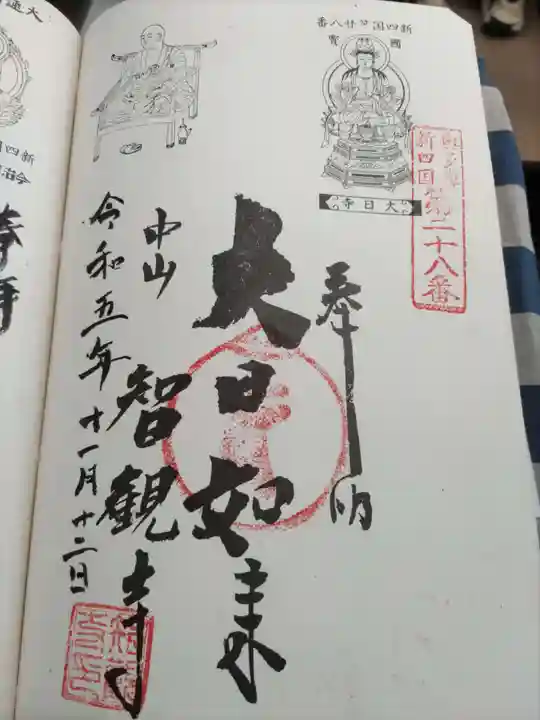 新四国第廿八番
國寶
大日寺
奥多摩
新四国第二十八番
奉拝
大日如来
中山
智観寺
令和五年十一月十二日
奉拝